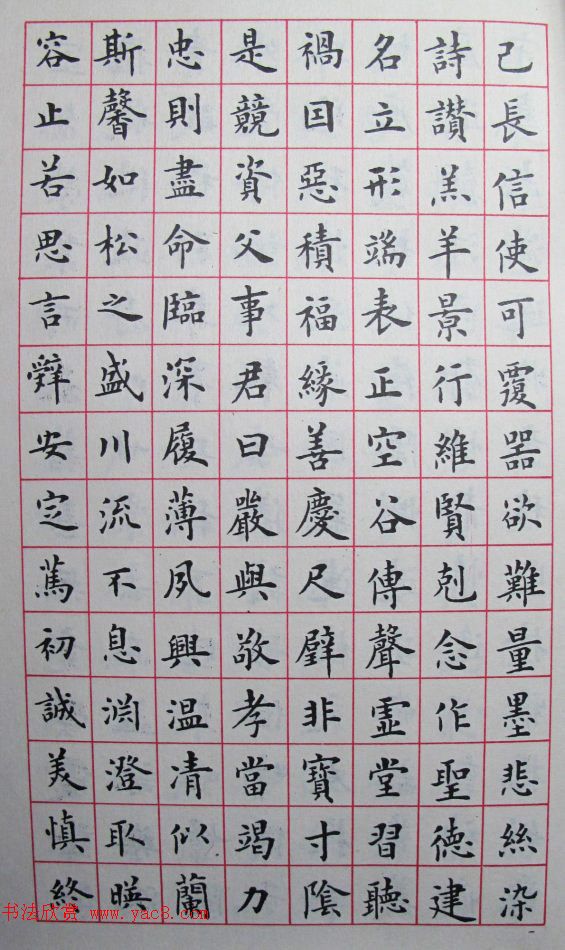 己長信使可覆器欲難量墨悲絲染
詩讃羔羊景行維賢剋念作聖德建
名立形端表正空谷傳聲虛堂習聽
禍因惡積福緣善慶尺璧非寶寸陰
是競資父事君曰嚴與敬孝當竭力
忠則盡命臨深履薄夙興温凊似蘭
斯馨如松之盛川流不息淵澄取暎
容止若思言辭安定篤初誠美慎終
书法欣赏 www.yac8.com